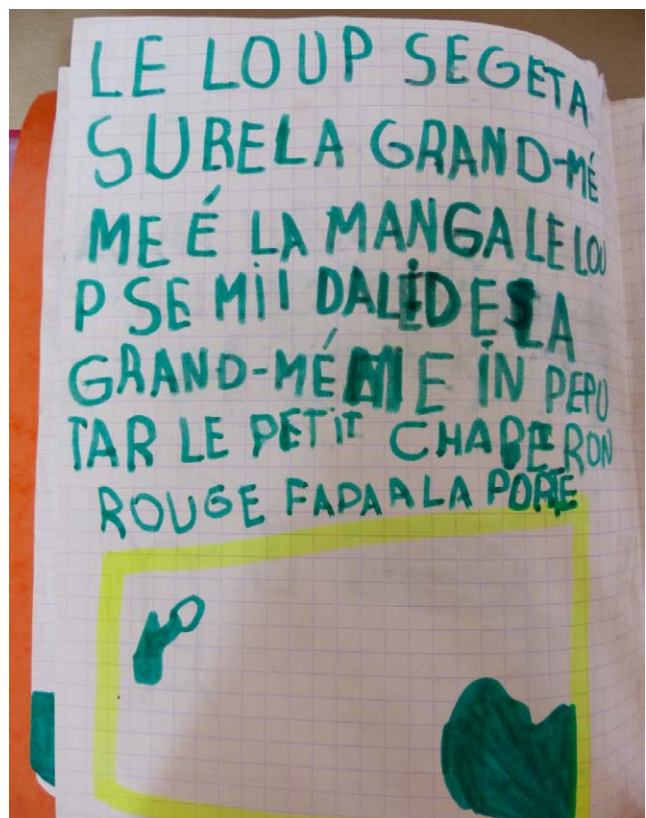 LE LOUP SEGETA
SURELA GRAND-MÉ
ME É LA MANGA LE LOU
P SE MII DALEDESLA
GRAND-MÉME IN PEPU
TAR LE PETIT CHAPERON
ROUGE FAPAALA PORTE